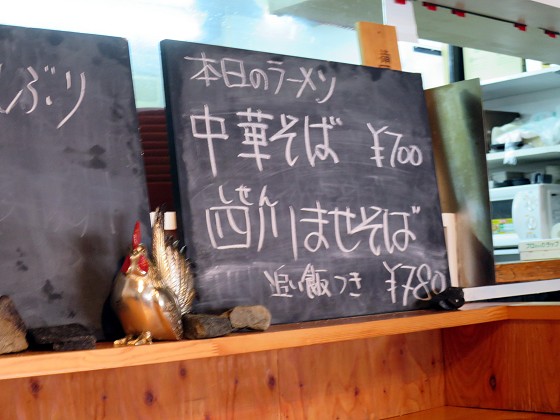 んぶり
本日のラーメン
中華そば ¥700
しせん
四川ませそば
追い飯つき ¥780